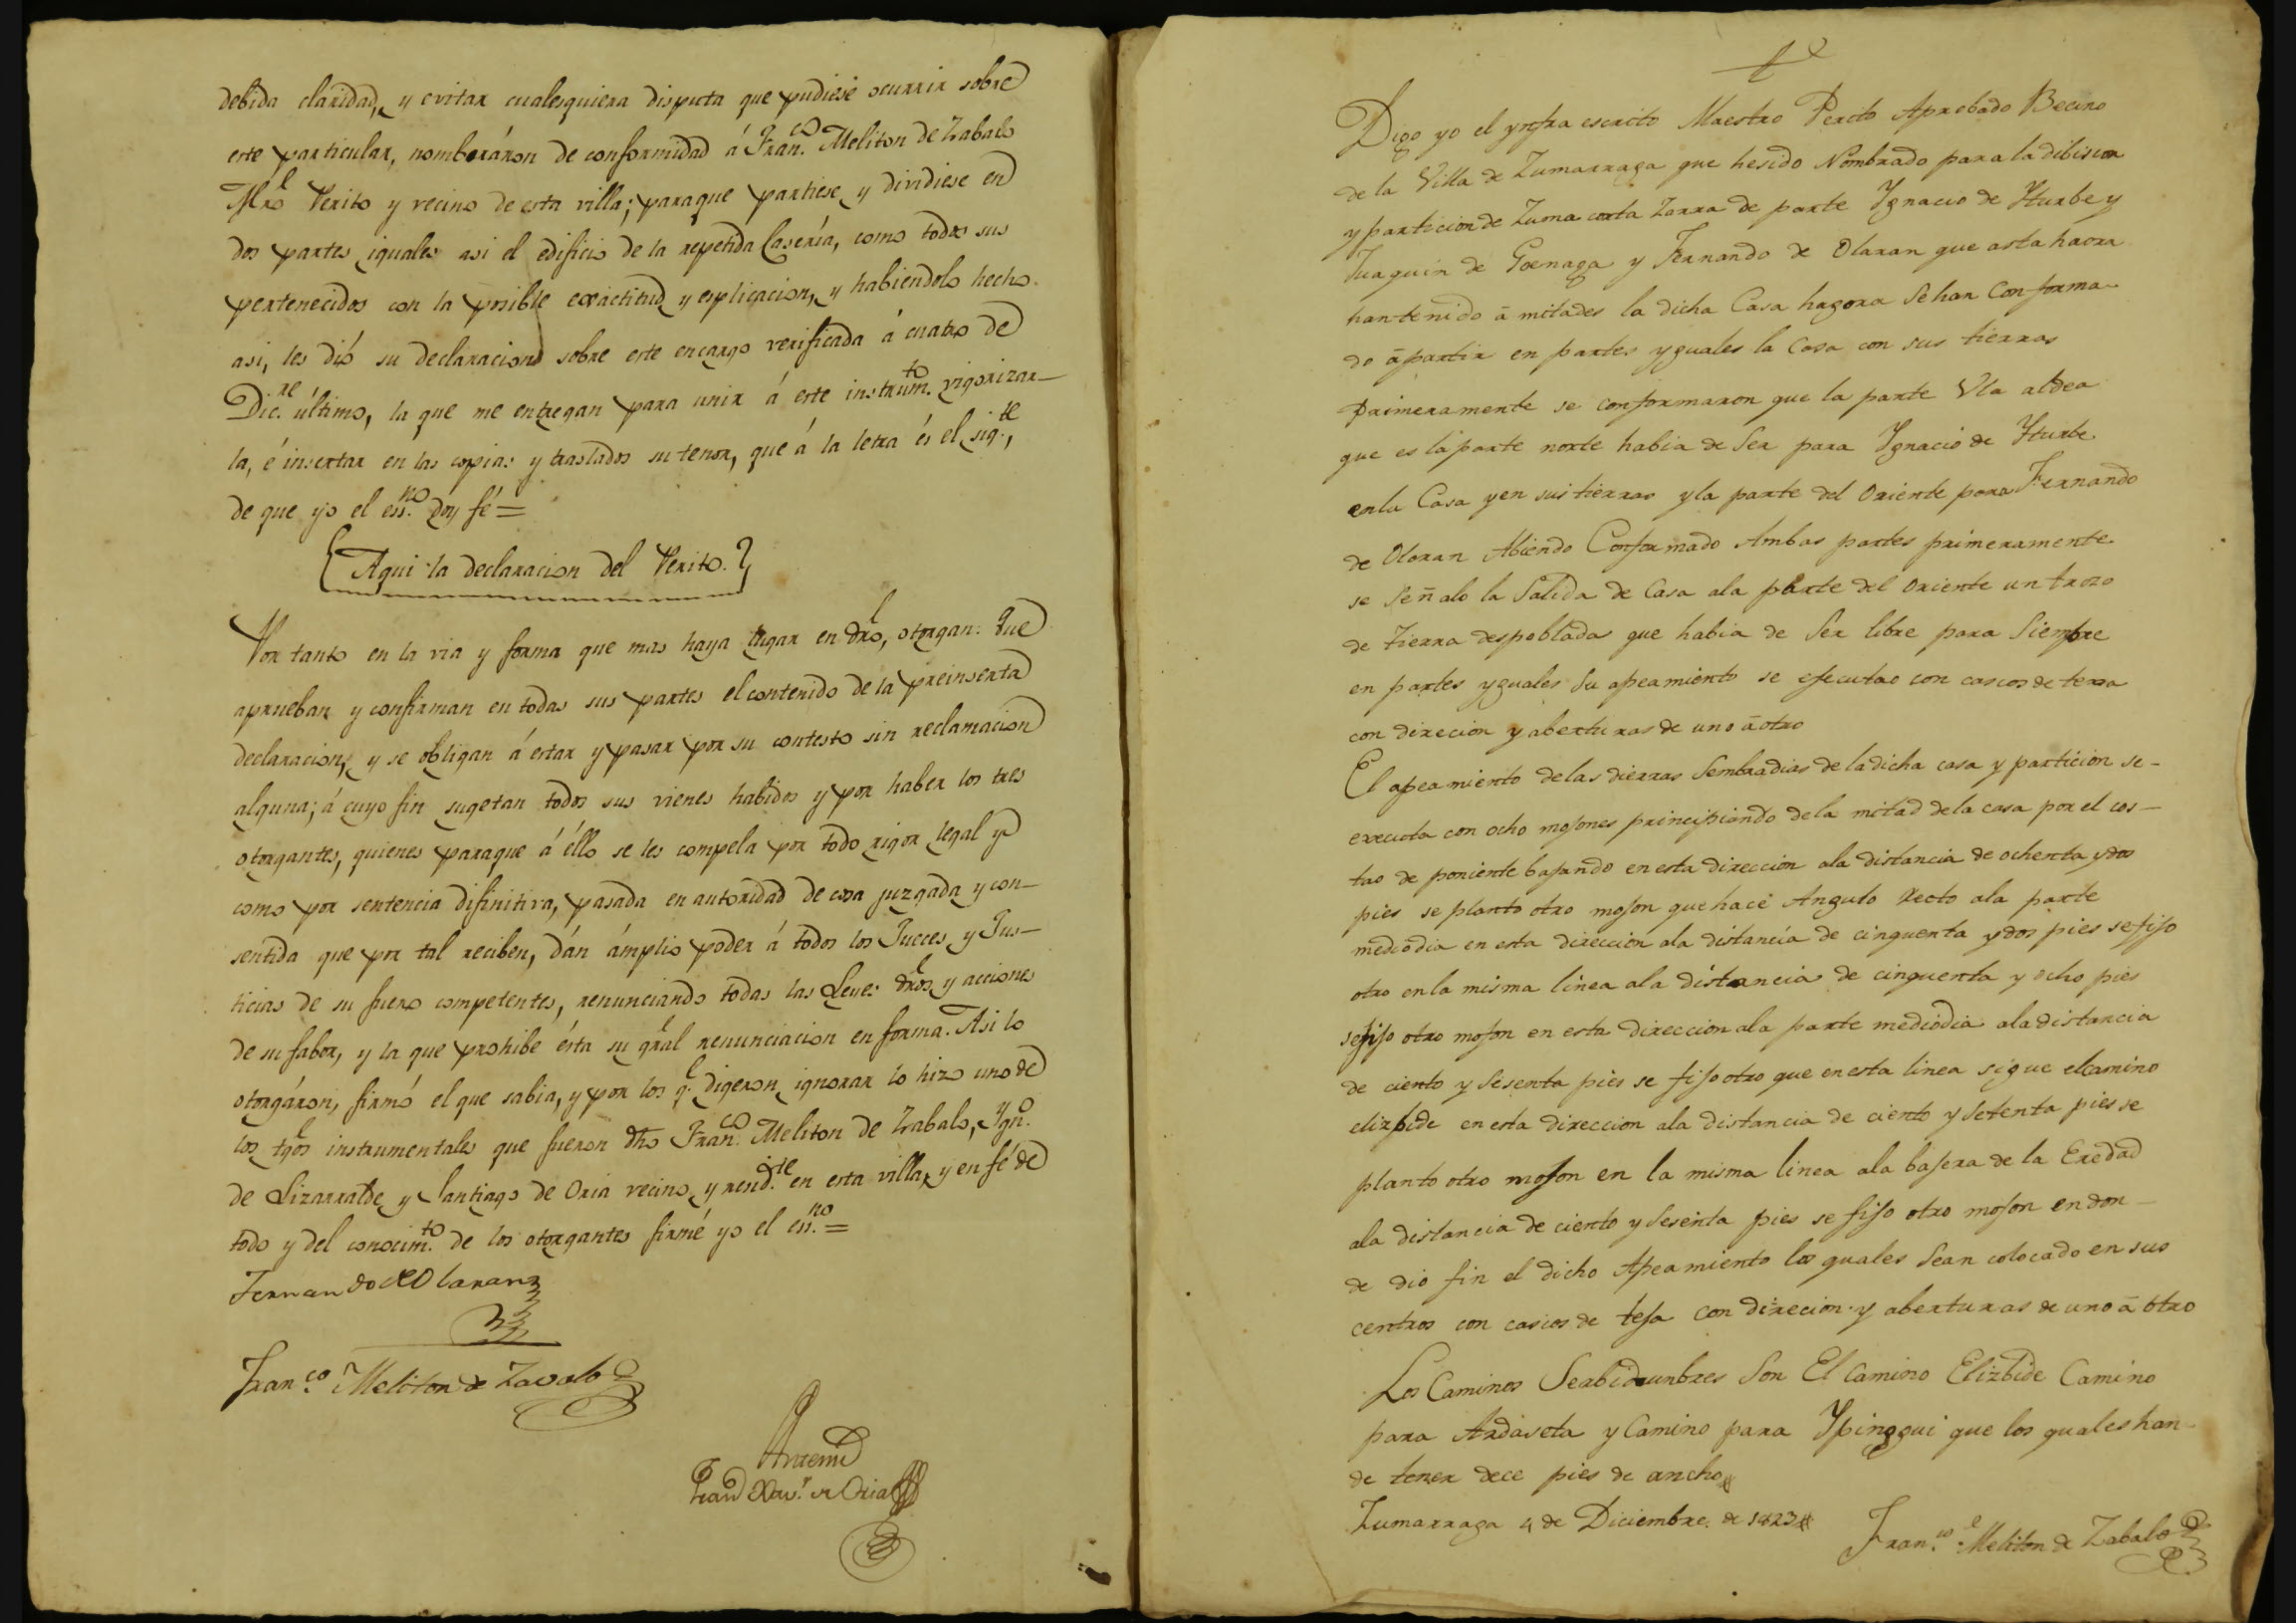 debida claridad, y evitar cualesquiera disputa que pudiese ocurrir sobre
este particular, nombráron de conformidad á Fran.co Meliton de Zabalo
Mro Perito y vecino de esta villa; paraque partiese y dividiese en
dos partes iguales asi el edificio de la repetida Casería, como todos sus
pertenecidos con la posible exâctitud y esplicacion, y habiendolo hecho
asi, les dió su declaracion sobre este encargo verificada á cuatro de
Dic.re último, la que me entregan para unir á este instrum.to vigorizar-
la, é insertar en las copias y traslados su tenor, que á la letra és el sig.te,
de que yo el ess.no doy fé =
{Aqui la declaracion del Perito.}
Por tanto en la via y forma que mas haya lugar en dro, otorgan: Que
aprueban y confirman en todas sus partes el contenido de la preinserta
declaracion, y se obligan á estar y pasar por su contesto sin reclamacion
alguna; á cuyo fin sugetan todos sus vienes habidos y por haber los tres
otorgantes, quienes paraque á éllo se les compela por todo rigor legal y
como por sentencia difinitiva, pasada en autoridad de cosa juzgada y con-
sentida que por tal reciben, dán ámplio poder á todos los Jueces y Jus-
ticias de su fuero competentes, renunciando todas las Leyes dros y acciones
de su fabor, y la que prohibe ésta su gral renunciacion en forma. Asi lo
otorgáron, firmó el que sabia, y por los q.e digeron ignorar lo hizo uno de
los tgos instrumentales que fueron dho Fran.co Meliton de Zabalo, Ygn.o
de Lizarralde y Santiago de Oria vecino y resid.te en esta villa, y en fé de
todo y del conocim.to de los otorgantes firmé yo el ess.no =
Fernando de Olaran
Fran.co Meliton de Zavalo
Antemi
Fran Xav.r de Oria
Digo yo el ynfra escrito Maestro Perito Aprobado Becino
de la Villa de Zumarraga que hesido Nombrado para la dibision
y particion de Zuma corta Zarra de parte Ygnacio de Yturbe y
Juaquin de Goenaga y Fernando de Olaran que asta haora
hantenido á mitades la dicha Casa hagora Sehan Conforma-
do á partir en partes yguales la Casa con sus tierras
primeramente se conformaron que la parte Ula aldea
que es la parte norte habia de Ser para Ygnacio de Yturbe
enla Casa yen sus tierras y la parte del Oriente para Fernando
de Olaran Abiendo Conformado Ambas partes primeramente
se Señalo la Salida de Casa ala parte del oriente un trozo
de tierra despoblada que habia de Ser libre para Siempre
en partes yguales Su apeamiento se efecutao con cascos de texa
con direcion y aberturas de uno á otro
El apeamiento delas dierras Sembradias de ladicha casa y particion se-
executa con ocho mojones principiando dela mitad dela casa por el cos-
tao de poniente bajando en esta direccion ala distancia de ochenta y dos
pies se planto otro mojon que hace Angulo Recto ala parte
mediodia en esta direccion ala distancia de cinquenta y dos pies sefijo
otro enla misma linea ala distancia de cinquenta y ocho pies
sefijo otro mojon en esta direccion ala parte mediodia ala distancia
de ciento y Sesenta pies se fijo otro que en esta linea sigue elcamino
elizbide en esta direccion ala distancia de ciento y Setenta pies se
planto otro mojon en la misma linea ala bajera de la Eredad
ala distancia de ciento y Sesenta pies se fijo otro mojon en don-
de dio fin el dicho Apeamiento los quales Sean colocado en sus
centros con cascos de teja con direcion y aberturas de uno á otro
Los Caminos Serbidunbres Son El Camino Elizbide Camino
para Ardaseta y Camino para Ypinggui que los quales han
de tener dece pies de ancho
Zumarraga 4 de Diciembre de 1823
Fran.co Meliton de Zabalo